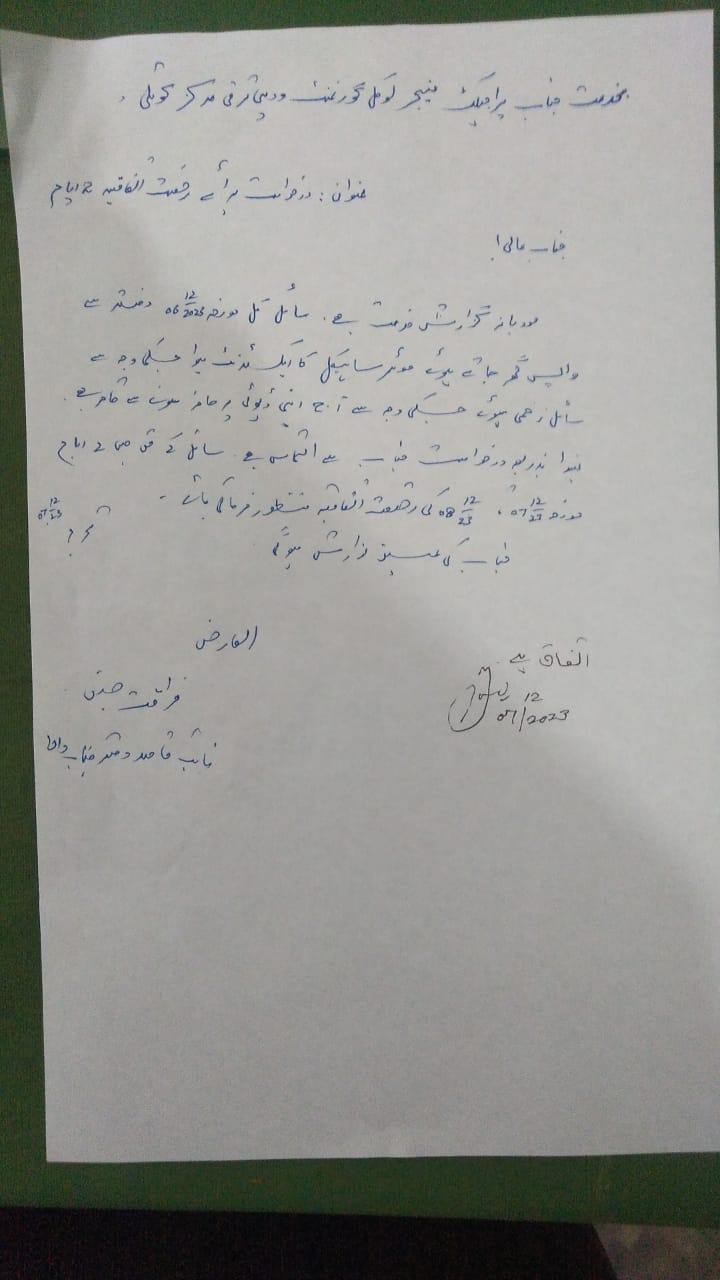 بخدمت جناب پراجیکٹ منیجر لوکل گورنمنٹ و دیہی ترقی مرکز کوٹلی ۔
عنوان : درخواست برائے رخصت اتفاقیہ 2 ایام
جناب عالی!
مودبانہ گزارش خدمت ہے ۔ سائل کل مورخہ 06 12/2023 دفتر سے
واپس گھر جاتے ہوئے موٹر سائیکل کا ایکسیڈنٹ ہوا جسکی وجہ سے
سائل زخمی ہوئے جسکی وجہ سے آج اپنی ڈیوٹی پر حاضر ہونے سے قاصر ہے ۔
لہذا بذریعہ درخواست جناب سے التماس ہے سائل کے حق میں 2 ایام
مورخہ 07 12/23 ، 08 12/23 کی رخصت اتفاقیہ منظور فرمائی جائے ۔
جناب کی عین نوازش ہوگی
07 12/23
العارض
حسین
نائب قاصد دفتر جناب والا
اتفاق ہے
12
07/2023